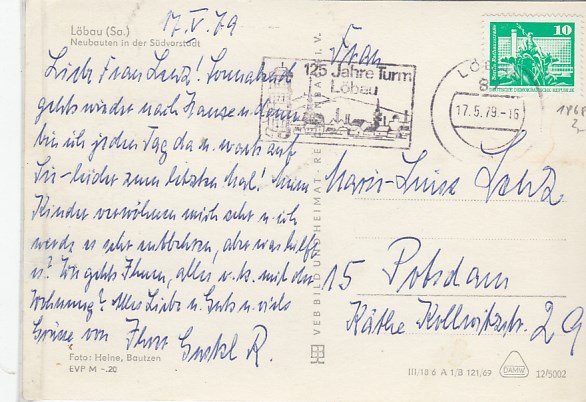 Löbau (Sa.)
Neubauten in der Südvorstadt
17. V. 79
Liebe Frau Lenz! Sonnabend
gehts wieder nach Hause u. dann
bin ich jeden Tag da u. warte auf
Sie - leider zum letzten Mal! Meine
Kinder verwöhnen mich sehr u. ich
werde es sehr entbehren, aber was hilft
s? Wie gehts Ihnen, alles o.k. mit der
Wohnung? Alles Liebe u. Gute u. viele
Grüsse von Ihrer R.
Foto: Heine, Bautzen
EVP M -.20
VEB BILD UND HEIMAT · REICHENBACH I. V.
125 Jahre Turm
Löbau
LÖBAU
8
17.5.79-16
10
DEUTSCHE DEMOKRATISCHE REPUBLIK
1868
Frau
Marie-Luise Lenz
15 Potsdam
Käthe Kollwitzstr. 29
III/18 6 A 1/B 121/69
DAMW
12/5002